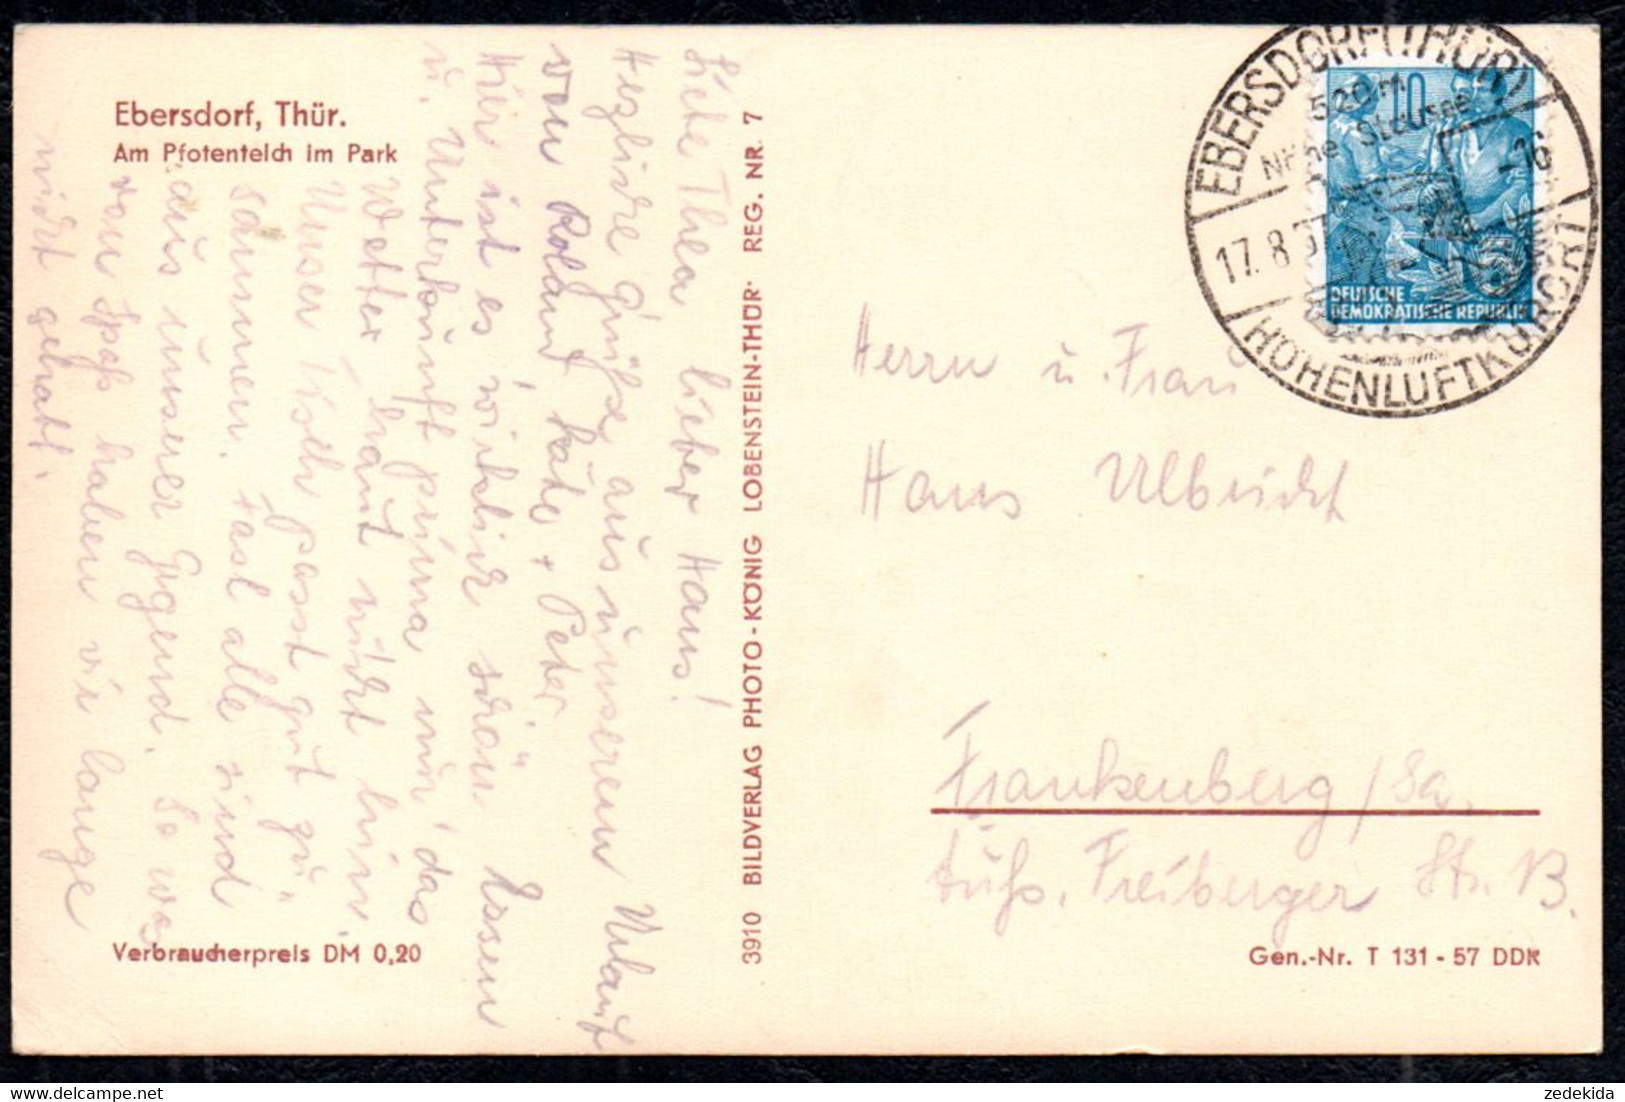 Ebersdorf, Thür.
Am Pfotenteich im Park
Liebe Thea, lieber Hans!
Herzliche Grüße aus unserem Urlaub
von Roland, Käte + Peter.
Hier ist es wirklich schön. Essen
u. Unterkunft prima nur das
Wetter haut nicht hin.
Unser Tisch passt gut zu-
sammen. Fast alle sind
aus unserer Gegend. So was
von Spaß haben wir lange
nicht gehabt.
Verbraucherpreis DM 0,20
3910 BILDVERLAG PHOTO-KÖNIG LOBENSTEIN-THÜR. REG. NR. 7
EBERSDORF (THÜR)
520 m
Nähe
17. 8. 57
HÖHENLUFTKURORT
10
DEUTSCHE
DEMOKRATISCHE REPUBLIK
Herrn u. Frau
Hans Ulbricht
Frankenberg / Sa.
Äuß. Freiberger Str.
Gen.-Nr. T 131 - 57 DDR
zedekida